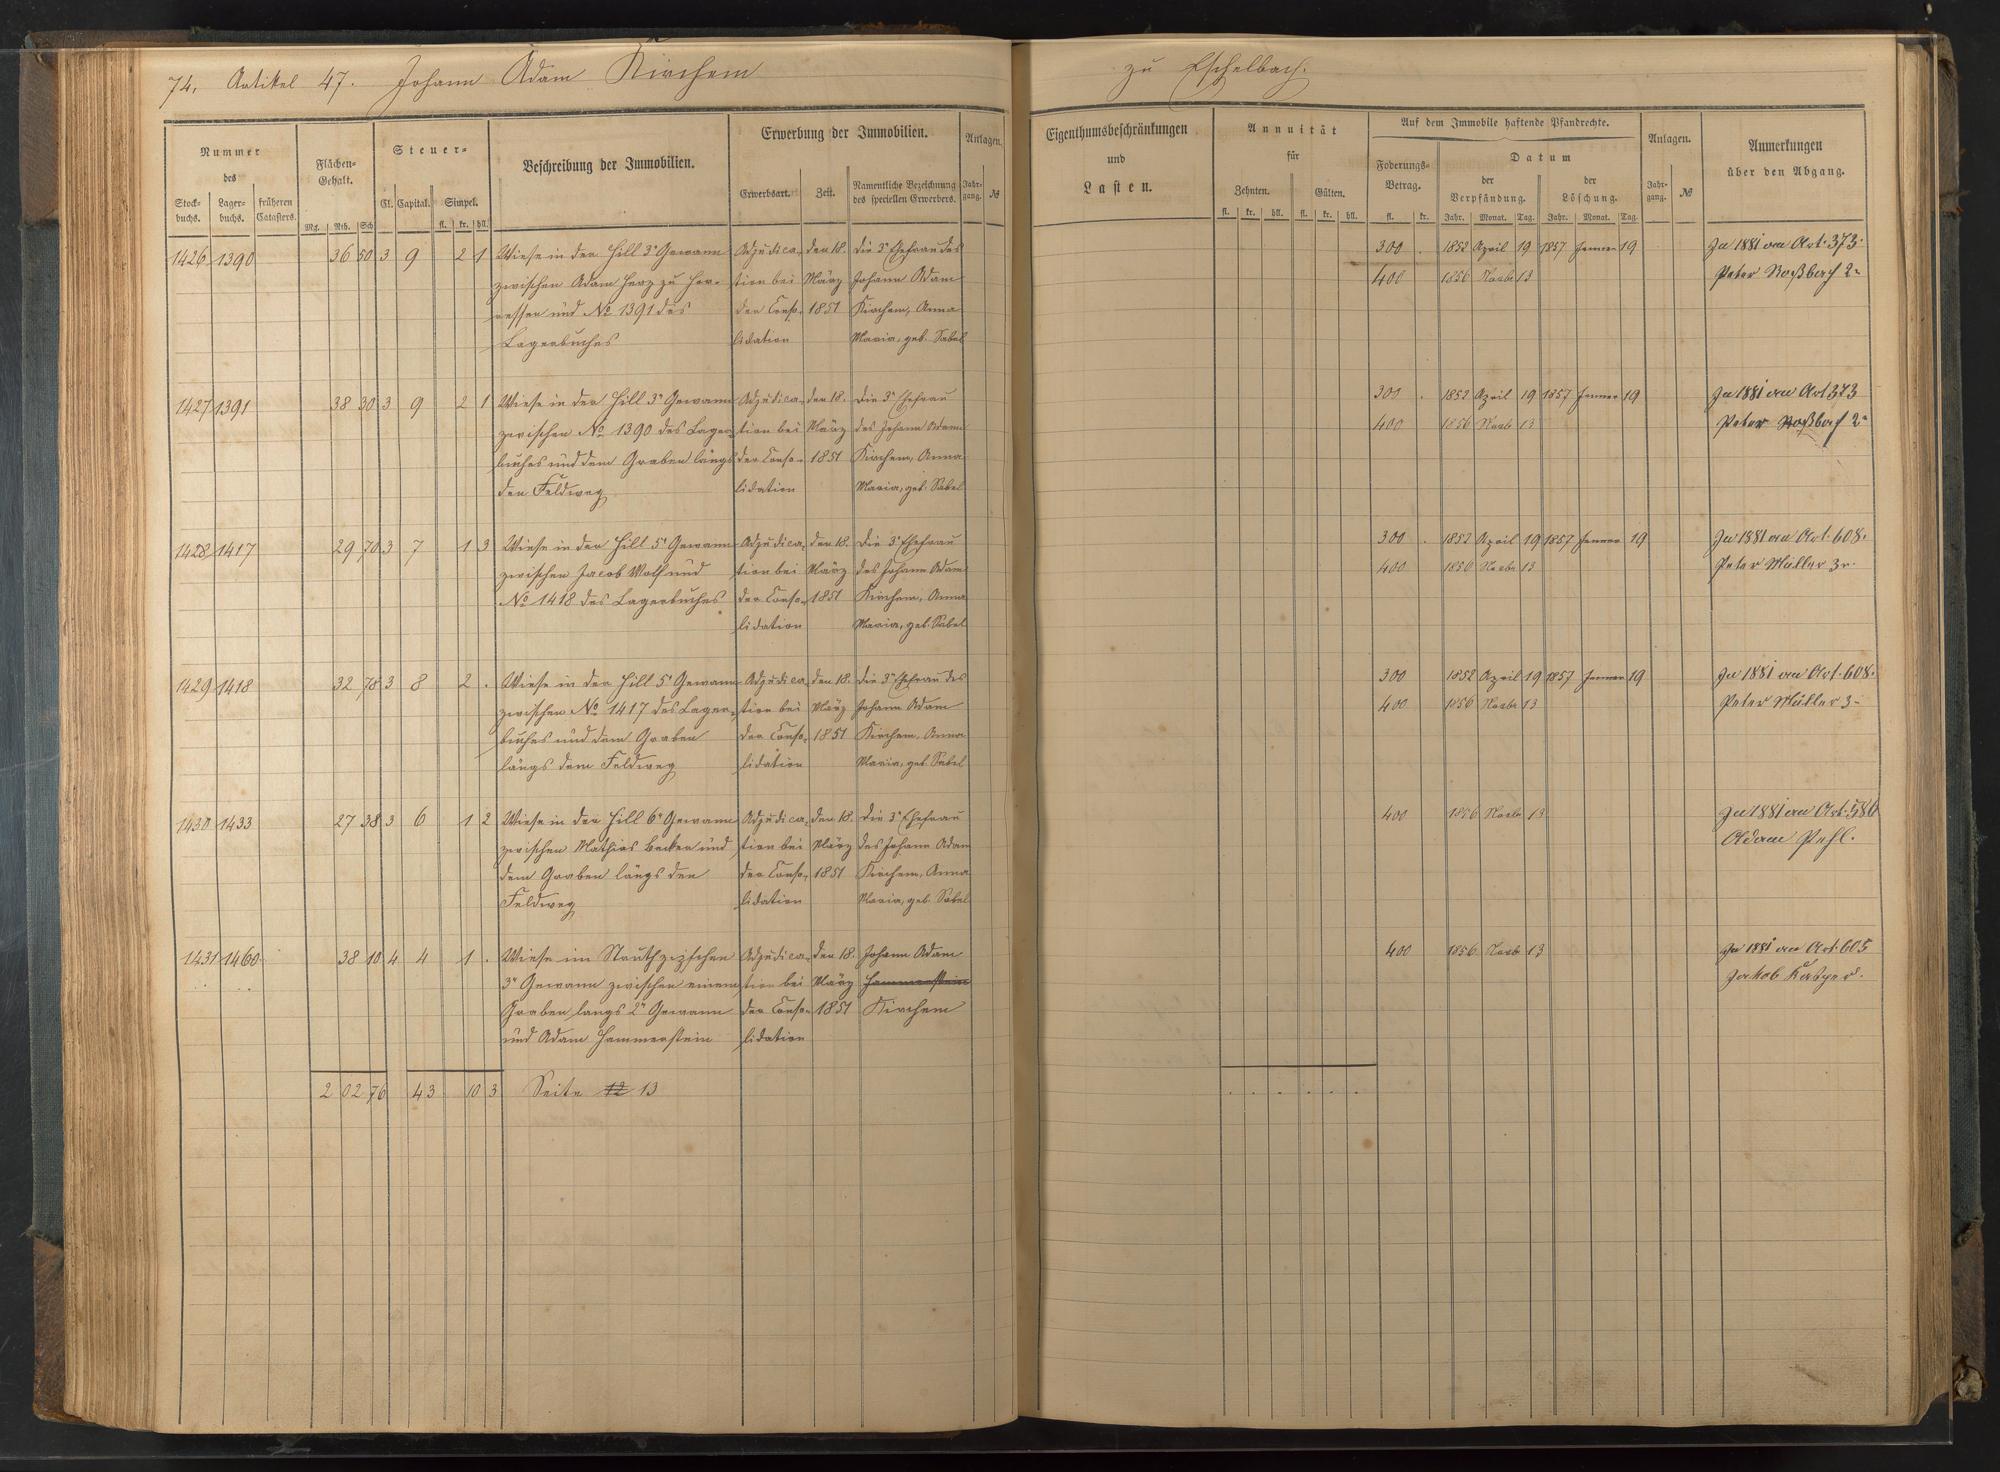 74. Artikel 47. Johann Adam Kirchem
zu Eschelbach.
Nummer
des
Stock-
buchs.
Lager-
buchs.
früheren
Catasters.
Flächen-
Gehalt.
Mg. Rth. Sch
Steuer-
Cl. Capital. Simpel.
fl. kr. hll.
Beschreibung der Immobilien.
Erwerbung der Immobilien.
Erwerbsart. Zeit. Namentliche Bezeichnung
des speciellen Erwerbers.
Anlagen.
Jahr-
gang. №
Eigenthumsbeschränkungen
und
Lasten.
Annuität
für
Zehnten. Gülten.
fl. kr. hll. fl. kr. hll.
Auf dem Immobile haftende Pfandrechte.
Foderungs-
Betrag.
fl. kr.
Datum
der
Verpfändung.
der
Löschung.
Jahr. Monat. Tag. Jahr. Monat. Tag.
Anlagen.
Jahr-
gang. №
Anmerkungen
über den Abgang.
1426 1390 36 50 3 9 2 1 Wiese in der Hill 3r Gewann Adjudica- den 18. Die 3e Ehefrau des
zwischen Adam Herz zu Hor- tion bei März Johann Adam
ressen und № 1391 des der Conso- 1851 Kirchem, Anna
Lagerbuches lidation Maria, geb. Sabel
300 . 1852 April 19 1857 Jenner 19 In 1881 an Art. 373.
400 1856 Novbr 13 Peter Roßbach 2r
1427 1391 38 30 3 9 2 1 Wiese in der Hill 3r Gewann Adjudica- den 18. Die 3e Ehefrau
zwischen № 1390 des Lager- tion bei März des Johann Adam
buches und dem Graben längs der Conso- 1851 Kirchem, Anna
den Feldweg lidation Maria, geb. Sabel
300 . 1852 April 19 1857 Jenner 19 In 1881 an Art 373
400 1856 Novbr 13 Peter Roßbach 2r
1428 1417 29 70 3 7 1 3 Wiese in der Hill 5r Gewann Adjudica- den 18. Die 3e Ehefrau
zwischen Jacob Wolf und tion bei März des Johann Adam
№ 1418 des Lagerbuches der Conso- 1851 Kirchem, Anna
lidation Maria, geb. Sabel
300 . 1852 April 19 1857 Jenner 19 In 1881 an Art. 608.
400 1856 Novbr 13 Peter Müller 3r.
1429 1418 32 78 3 8 2 . Wiese in der Hill 5r Gewann Adjudica- den 18. Die 3e Ehefrau des
zwischen № 1417 des Lager- tion bei März Johann Adam
buches und dem Graben der Conso- 1851 Kirchem, Anna
längs dem Feldweg lidation Maria, geb. Sabel
300 1852 April 19 1857 Jenner 19 In 1881 an Art. 608.
400 1856 Novbr 13 Peter Müller 3r
1430 1433 27 38 3 6 1 2 Wiese in der Hill 6r Gewann Adjudica- den 18. Die 3e Ehefrau
zwischen Mathias Becker und tion bei März des Johann Adam
dem Graben längs den der Conso- 1851 Kirchem, Anna
Feldweg lidation Maria, geb. Sabel
400 1856 Novbr 13 In 1881 an Art. 586
Adam Pehl.
1431 1460 38 10 4 4 1 . Wiese im Adjudica- den 18. Johann Adam
3r Gewann zwischen einem tion bei März Hammerstein
Graben langs 2r Gewann der Conso- 1851 Kirchem
und Adam Hammerstein lidation
400 1856 Novbr 13 In 1881 an Art. 605
Jakob Kasper.
2 02 76 43 10 3 Seite 12 13
. . . . . .